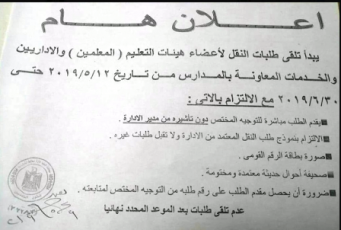 اعــلان هــام
يبدأ تلقى طلبات النقل لأعضاء هيئات التعليم ( المعلمين ) والاداريين
والخدمات المعاونة بالمدارس من تاريخ ٢٠١٩/٥/١٢ حتى
٢٠١٩/٦/٣٠ مع الالتزام بالاتى :
يقدم الطلب مباشرة للتوجيه المختص دون تأشيره من مدير الادارة .
الالتزام بنموذج طلب النقل المعتمد من الادارة ولا تقبل طلبات غيره .
صورة بطاقة الرقم القومى .
صحيفة أحوال حديثة معتمدة ومختومة .
ضرورة أن يحصل مقدم الطلب على رقم طلبه من التوجيه المختص لمتابعته .
عدم تلقى طلبات بعد الموعد المحدد نهائيا